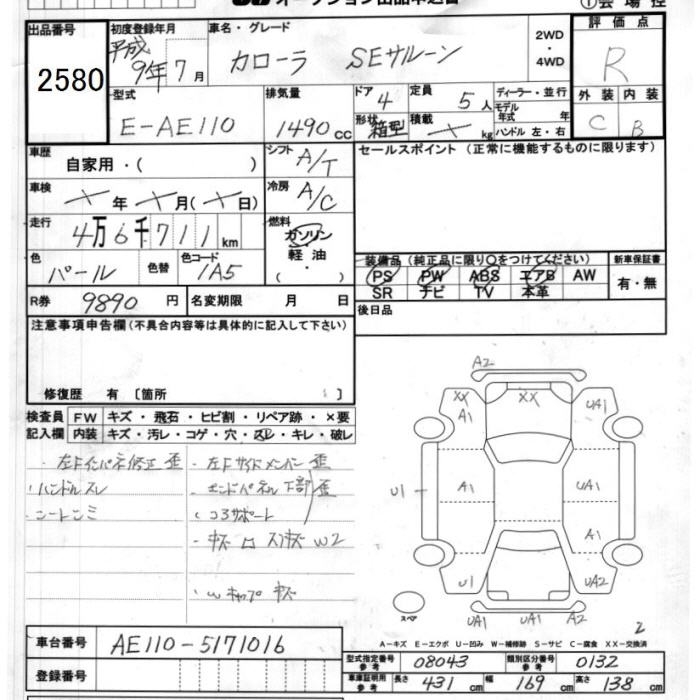 ①会場控
オークション出品申込書
出品番号
2580
初度登録年月
平成
9年7月
車名・グレード
カローラ SEサルーン
2WD
・
4WD
評価点
R
外装 内装
C B
型式
E-AE110
排気量
1490cc
ドア 4
形状 箱型
定員 5人
積載 × kg
ディーラー・並行
モデル
年式 年
ハンドル 左・右
車歴
自家用・( )
シフト A/T
セールスポイント(正常に機能するものに限ります)
車検
×年×月(×日)
冷房 A/C
走行
4万6千711km
燃料
ガソリン
軽油
( ・ )
色
パール
色替
色コード
1A5
装備品(純正品に限り○をつけてください)
PS PW ABS エアB AW
SR ナビ TV 本革
新車保証書
有・無
R券 9890円
名変期限 月 日
後日品
注意事項申告欄(不具合内容等は具体的に記入して下さい)
修復歴 有〔箇所 〕
検査員
記入欄
FW キズ・飛石・ヒビ割・リペア跡・×要
内装 キズ・汚レ・コゲ・穴・スレ・キレ・破レ
・左Fインパネ修正 歪
・ハンドルスレ
・シートシミ
・左Fサイドメンバー 歪
・エンドパネル下部 歪
・コアサポート
・キズ ロ スリキズ W2
・Wキャップ キズ
A2
XX
A1
XX
UA1
U1
A1
UA1
A1
U1
UA2
スペア
UA1
UA1
A2
2
A-キズ E-エクボ U-凹み W-補修跡 S-サビ C-腐食 XX-交換済
車台番号 AE110-5171016
登録番号
型式指定番号
参考
08043
類別区分番号
参考
0132
車庫証明用
参考
長さ 431cm 幅 169cm 高さ 138cm